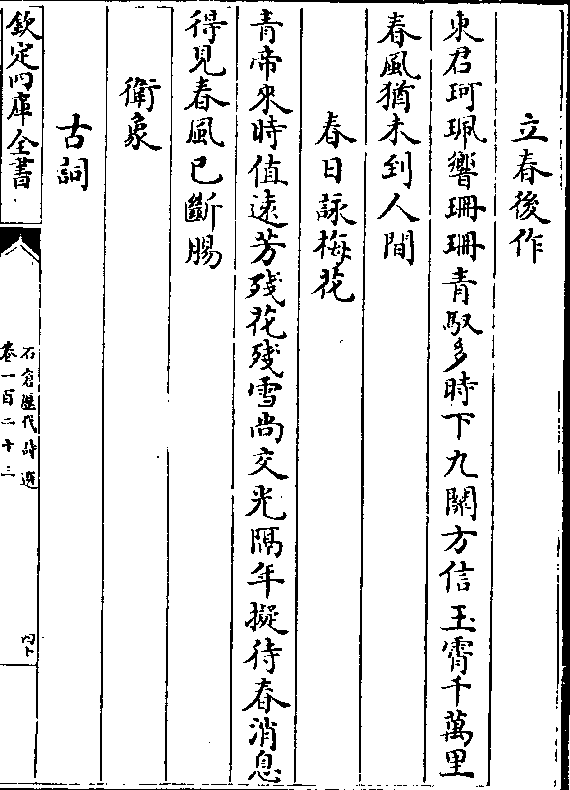 立春後作
東君珂珮響珊珊青馭多時下九關方信玉霄千萬里
春風猶未到人間
春日詠梅花
青帝來時值遠芳殘花殘雪尚交光隔年擬待春消息
得見春風已斷腸
衛象
古詞
欽定四庫全書
石倉歷代詩選
卷一百二十三